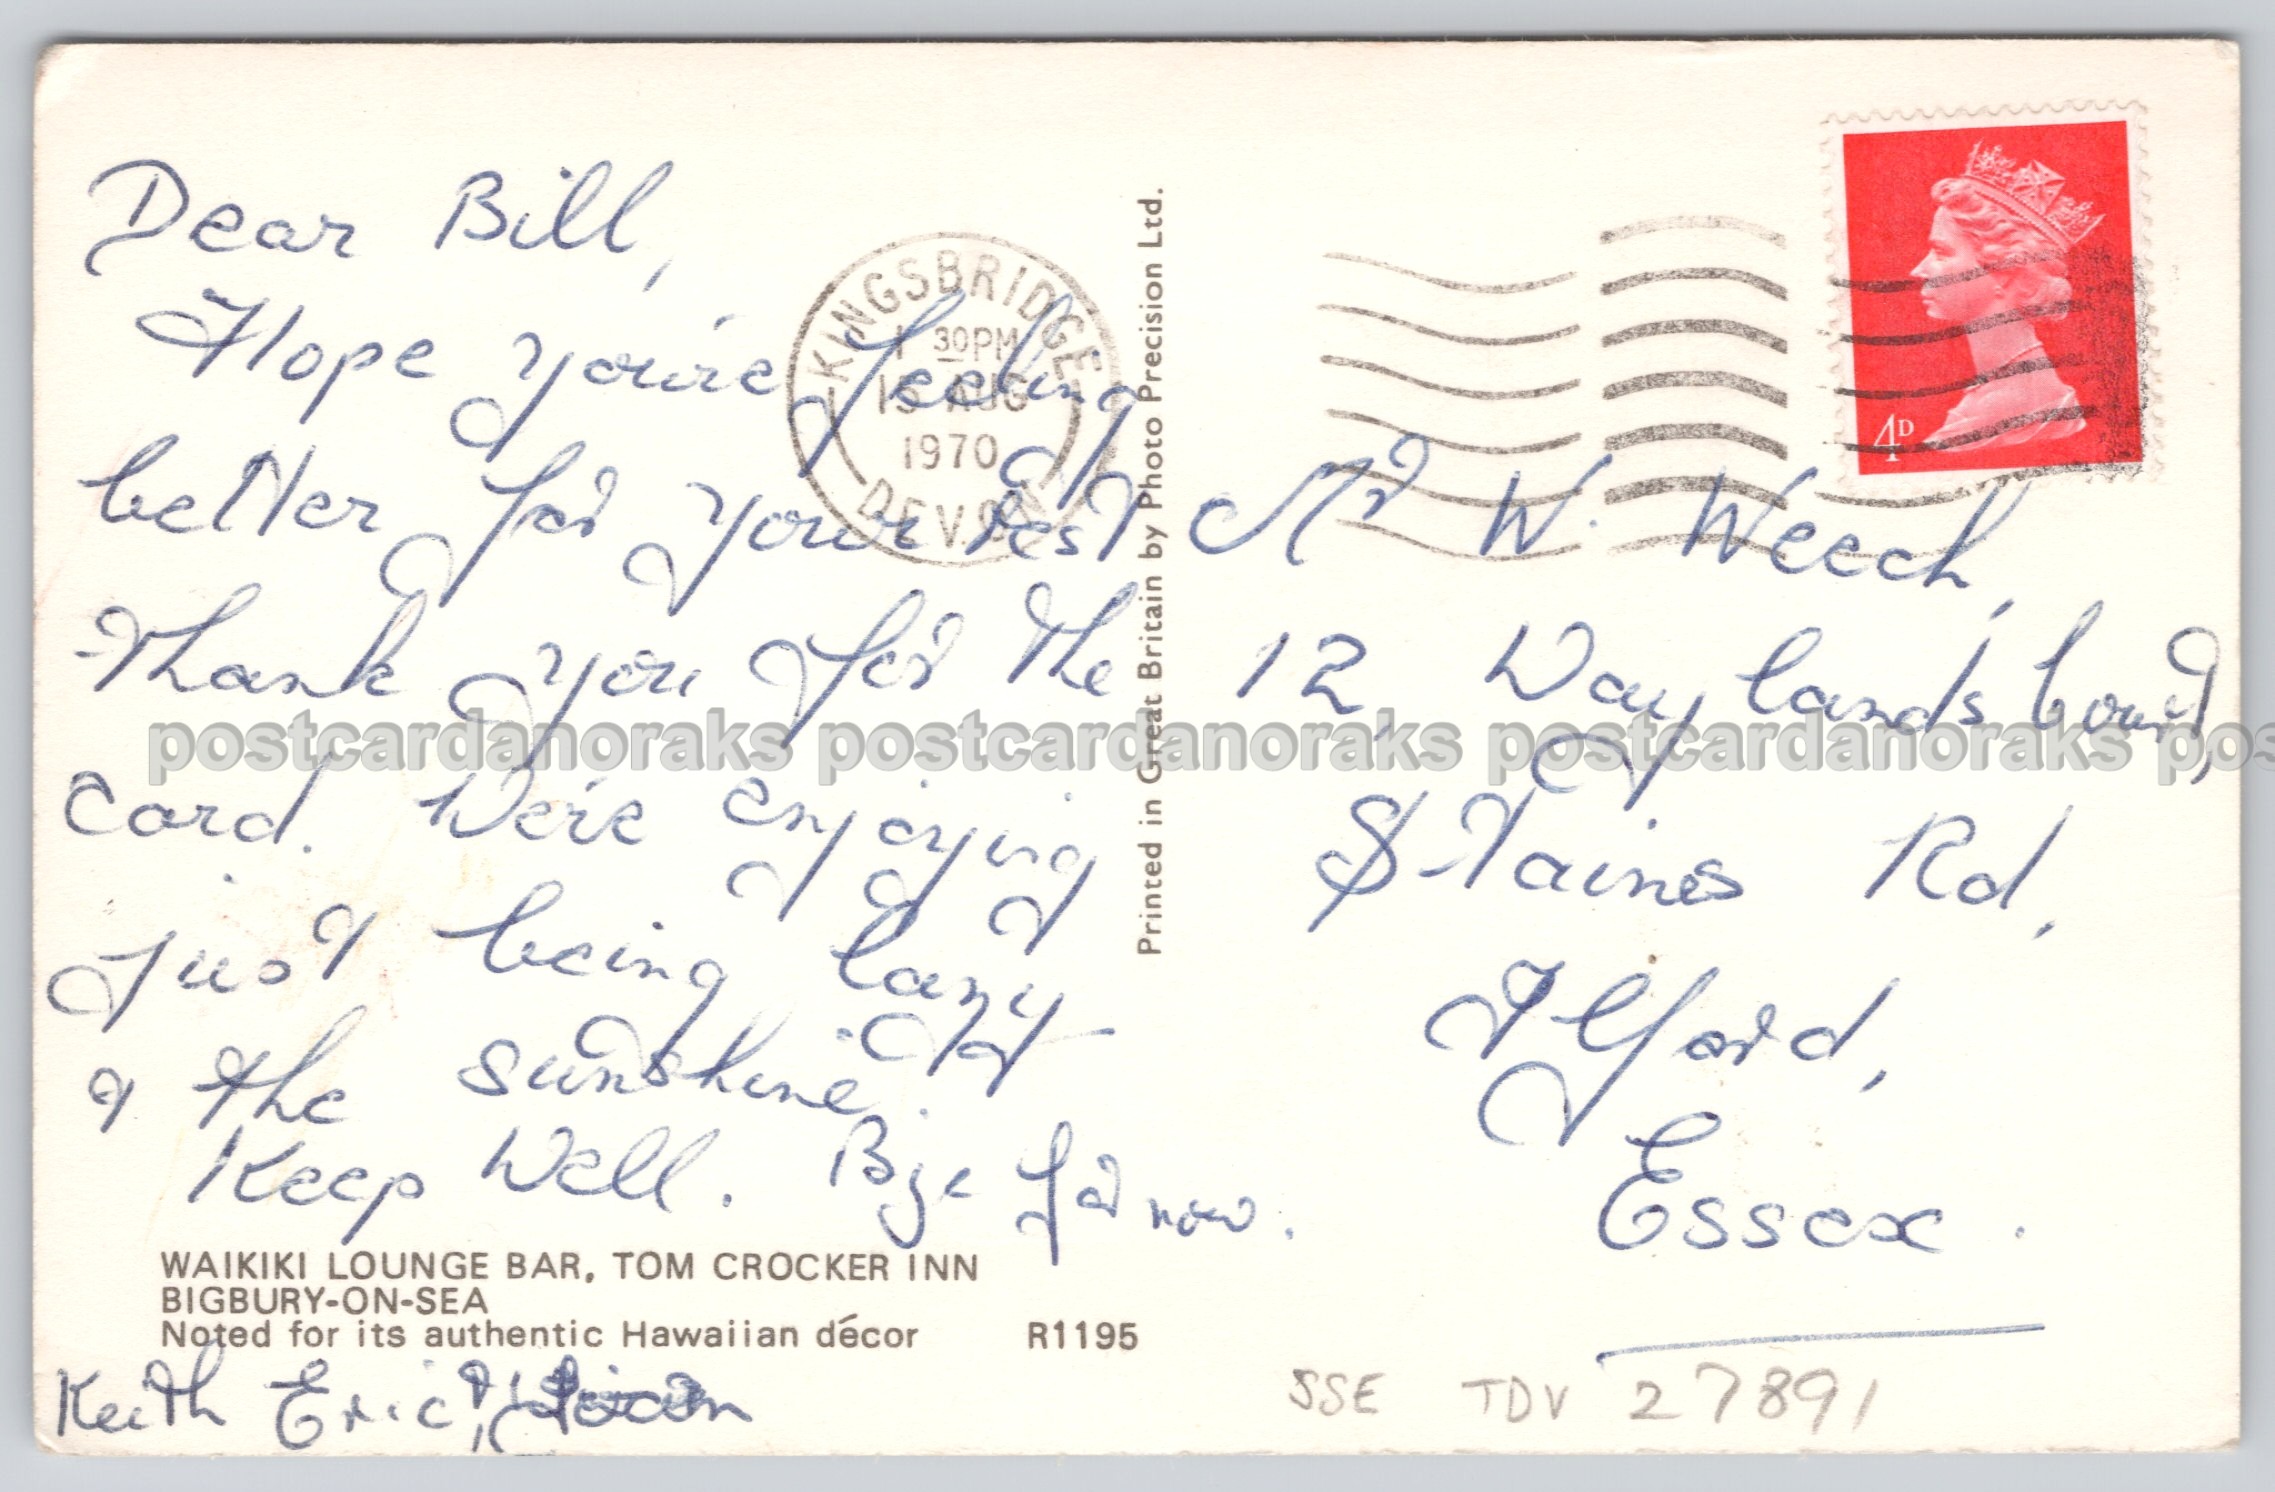 Dear Bill,
Hope you're feeling
better for your rest
Thank you for the
card. We're enjoying
just being lazy
& the sunshine.
Keep Well. Bye for now.
WAIKIKI LOUNGE BAR, TOM CROCKER INN
BIGBURY-ON-SEA
Noted for its authentic Hawaiian décor R1195
Keith Eric &
KINGSBRIDGE
30PM
AUG
1970
DEVON
Printed in Great Britain by Photo Precision Ltd.
4D
Mr W. Weech,
12, Waylands Court,
Staines Rd,
Ilford,
Essex.
SSE TDV 27891
postcardanoraks postcardanoraks postcardanoraks pos